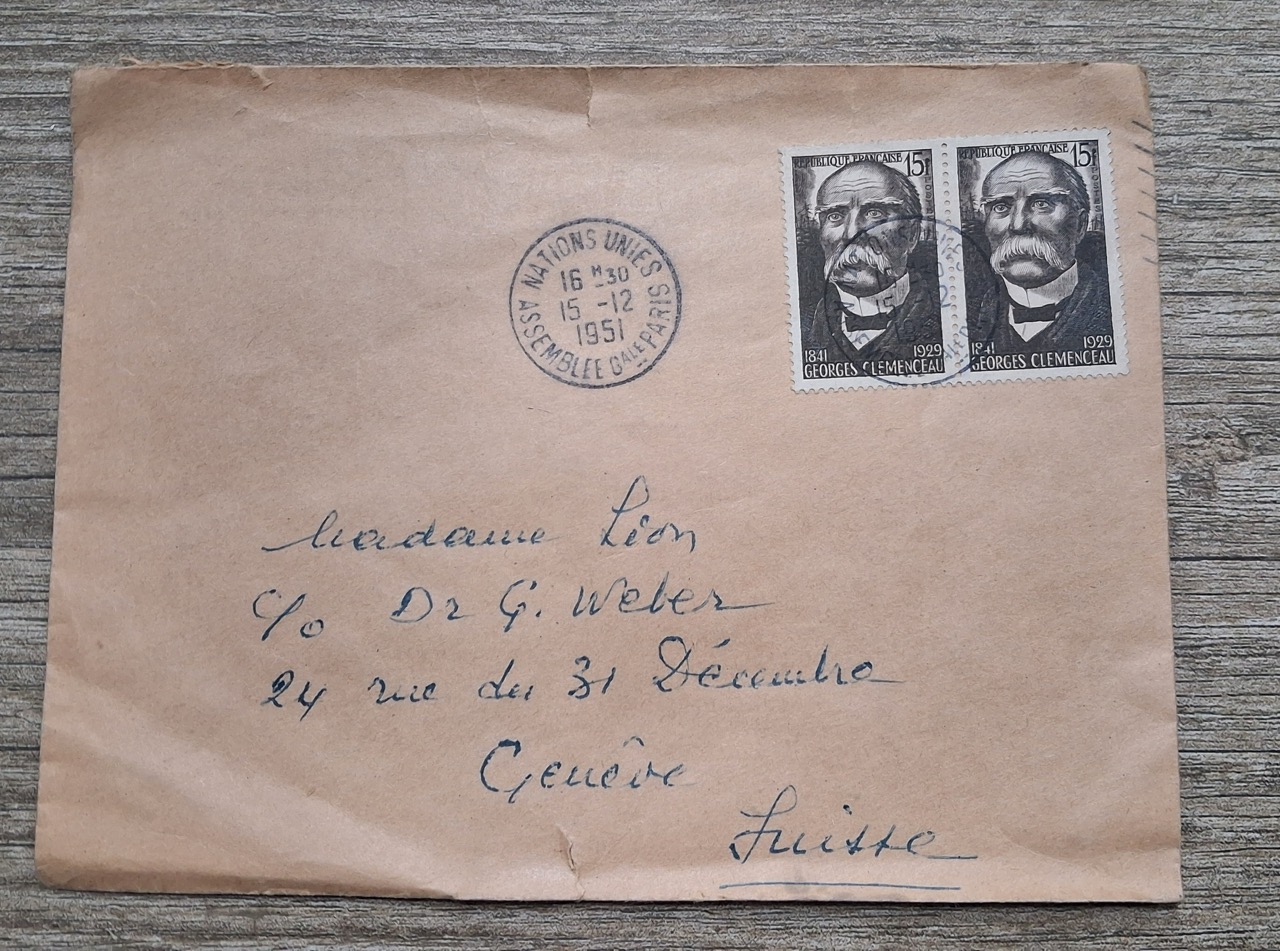 NATIONS UNIES
16 H30
15 -12
1951
ASSEMBLÉE GALE PARIS
REPUBLIQUE FRANÇAISE 15F
POSTES
1841 1929
GEORGES CLEMENCEAU
REPUBLIQUE FRANÇAISE 15F
POSTES
1841 1929
GEORGES CLEMENCEAU
Madame Léon
c/o Dr G. Weber
24 rue du 31 Décembre
Genève
Suisse